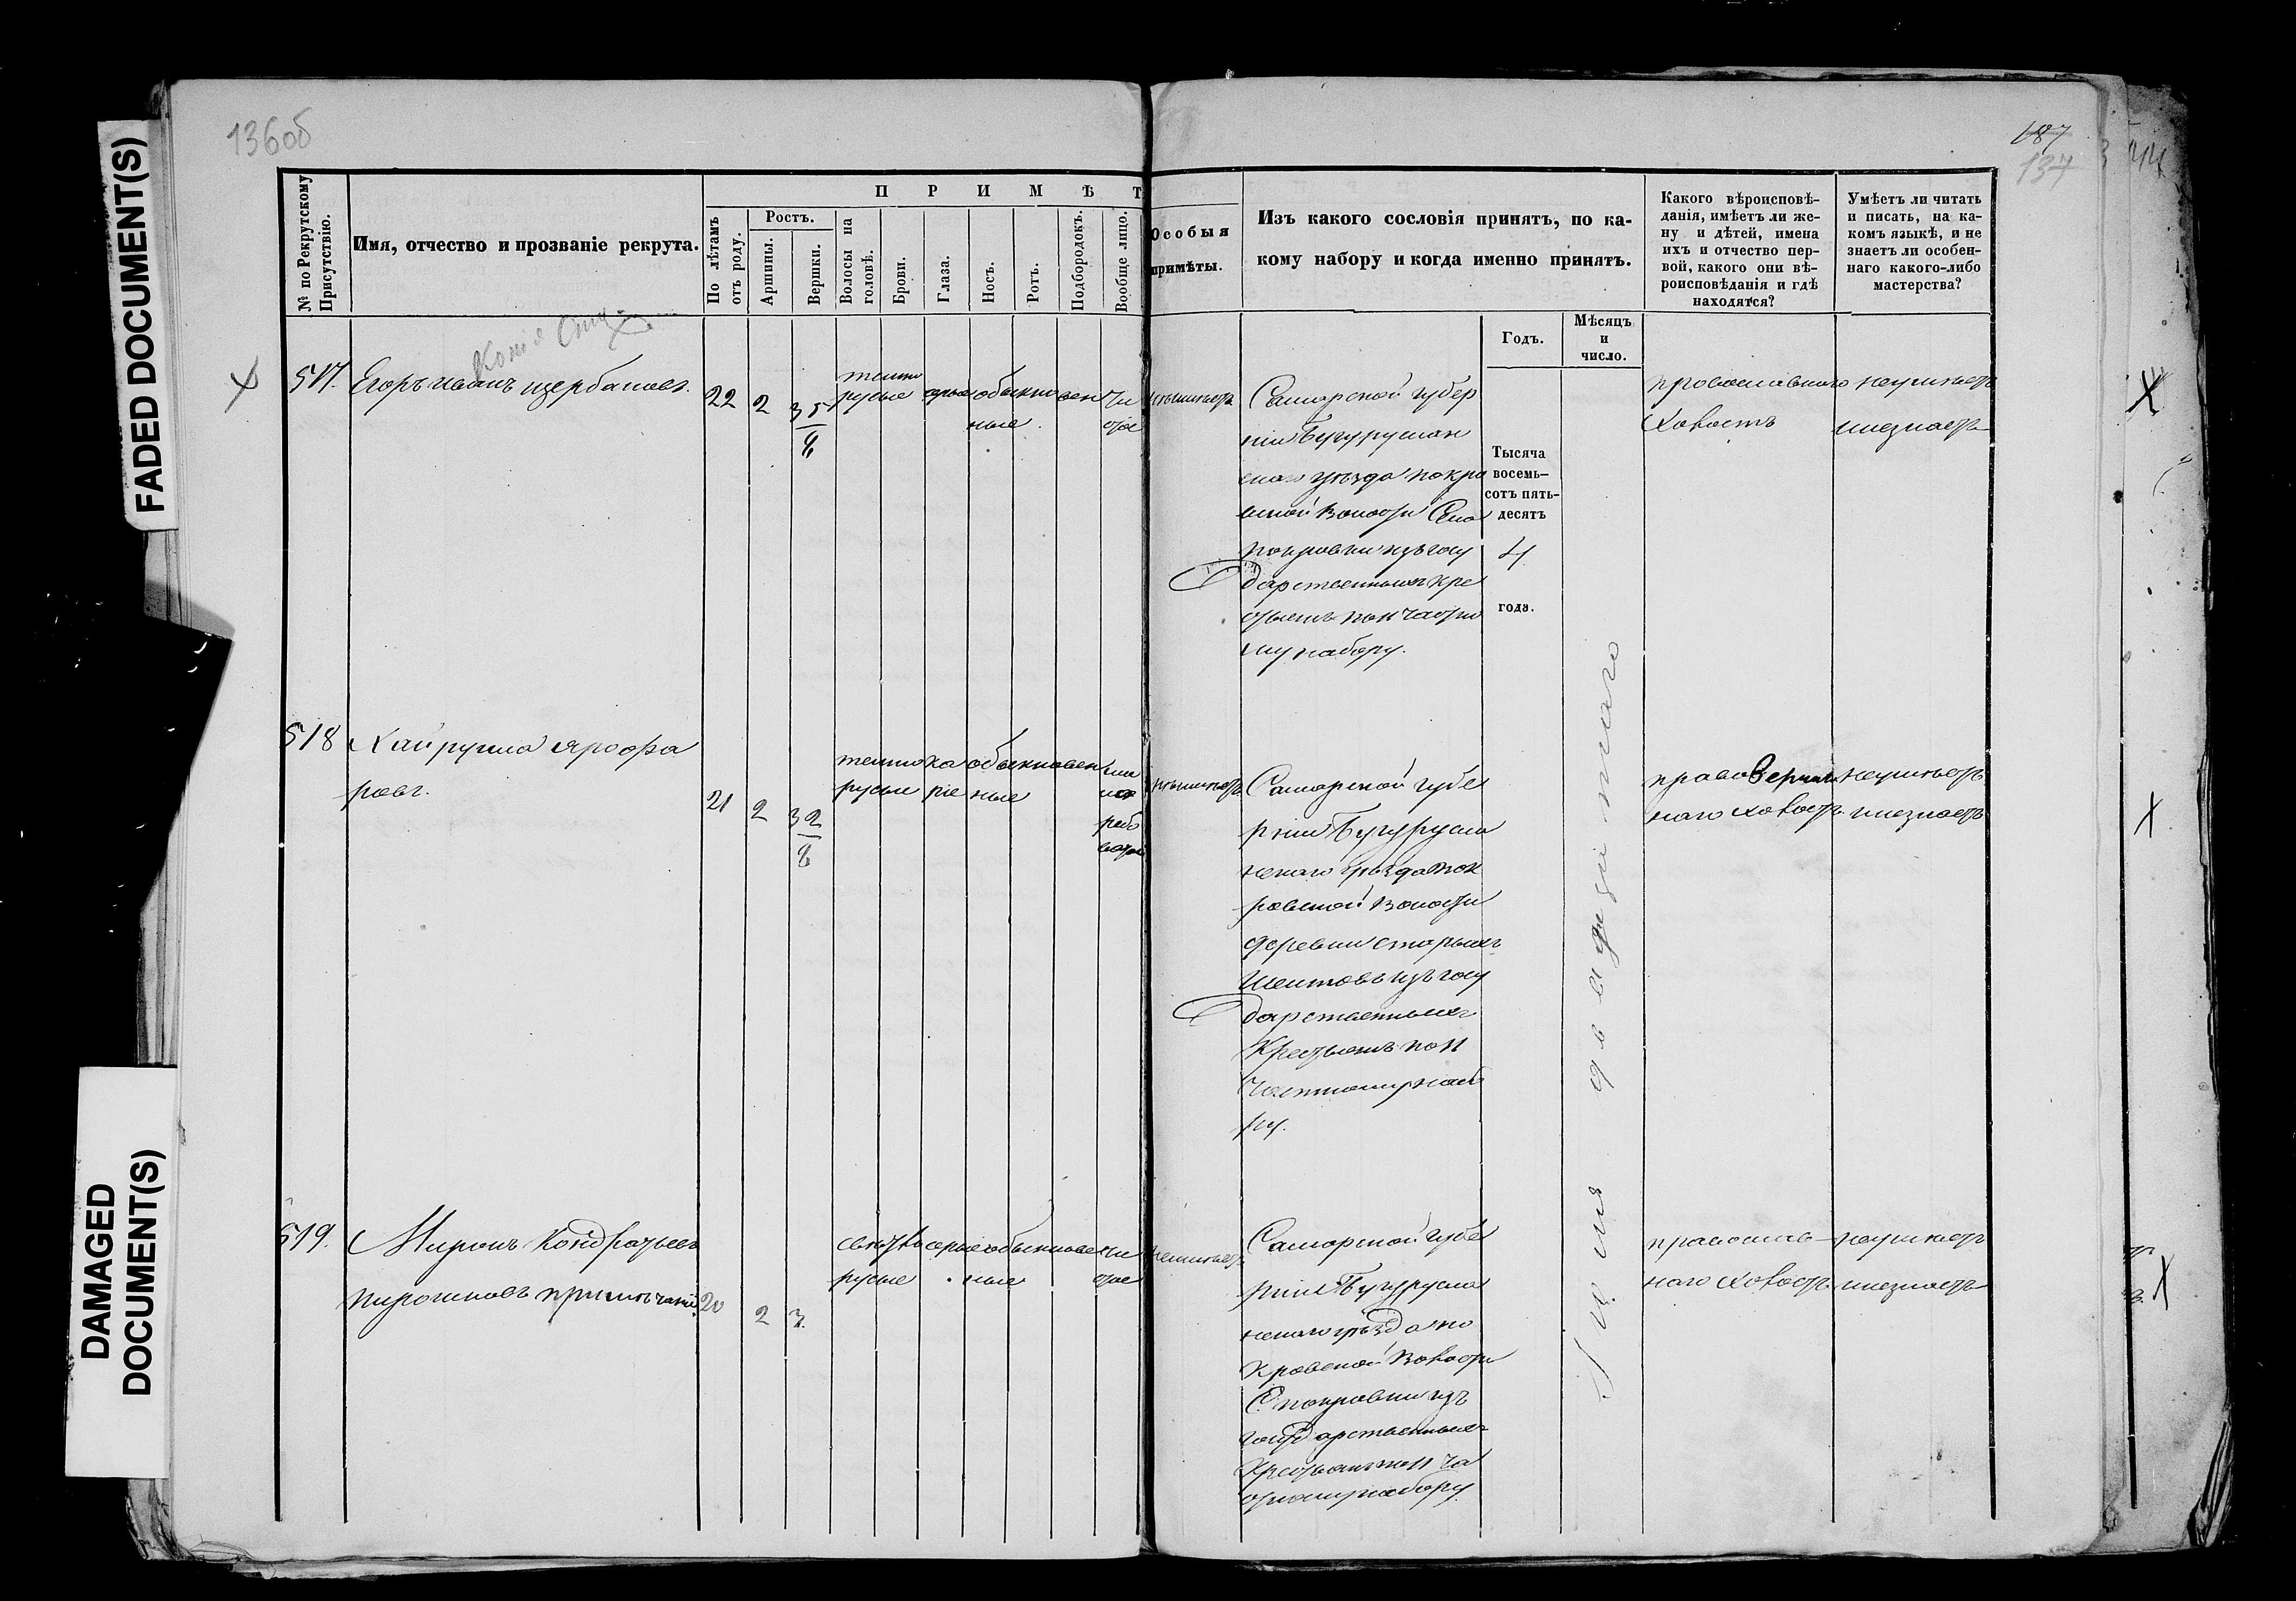 136об
187
137
FADED DOCUMENT(S)
DAMAGED DOCUMENT(S)
№ по Рекрутскому Присутствію.
Имя, отчество и прозваніе рекрута.
П Р И М Ѣ Т
По лѣтамъ отъ роду.
Ростъ.
Аршины.
Вершки.
Волосы на головѣ.
Брови.
Глаза.
Носъ.
Ротъ.
Подбородокъ.
Вообще лицо.
Особыя
примѣты.
Изъ какого сословія принятъ, по ка-
кому набору и когда именно принятъ.
Годъ.
Мѣсяцъ
и
число.
Какого вѣроисповѣ-
данія, имѣетъ ли же-
ну и дѣтей, имена
ихъ и отчество пер-
вой, какого они вѣ-
роисповѣданія и гдѣ
находятся?
Умѣетъ ли читать
и писать, на ка-
комъ языкѣ, и не
знаетъ ли особен-
наго какого-либо
мастерства?
517. Егоръ Иванъ щербаковъ.
22 2 3 5/8
темно
русые серые обыкновен
ные
чи
стое
неимѣетъ
Самарской губер
ніи Бугуруслан
скаго уѣзда покро
вской Волости Села
покровки изъ госу
дарственныхъ кре
стьянъ по 11 частно
му набору.
Тысяча
восемь-
сотъ пять-
десятъ
4
года.
православнаго
холостъ
неумѣетъ
инезнаетъ
518 Хайрулла
ровъ.
21 2 3 2/8
темно ка обыкновен
русые ріе ные
чи
сто
рябо
ватое
неимѣетъ
Самарской губе
рніи Бугурусла
нскаго уѣзда пок
ровской Волости
деревни старыхъ
изъ госу
дарственныхъ
Крестьянъ по 11
частному набо
ру.
правоверна
наго холостъ
неумѣетъ
инезнаетъ
519. Миронъ Кондратьевъ
20 2 3.
светло серые обыкновен
русые ные
чи
стое
неимѣетъ
Самарской губе
рніи Бугурусла
нскаго уѣзда по
кровской Волости
С. покровки изъ
государственныхъ
Крестьянъ по 11 ча
стному набору.
православ
наго холостъ
неумѣетъ
инезнаетъ